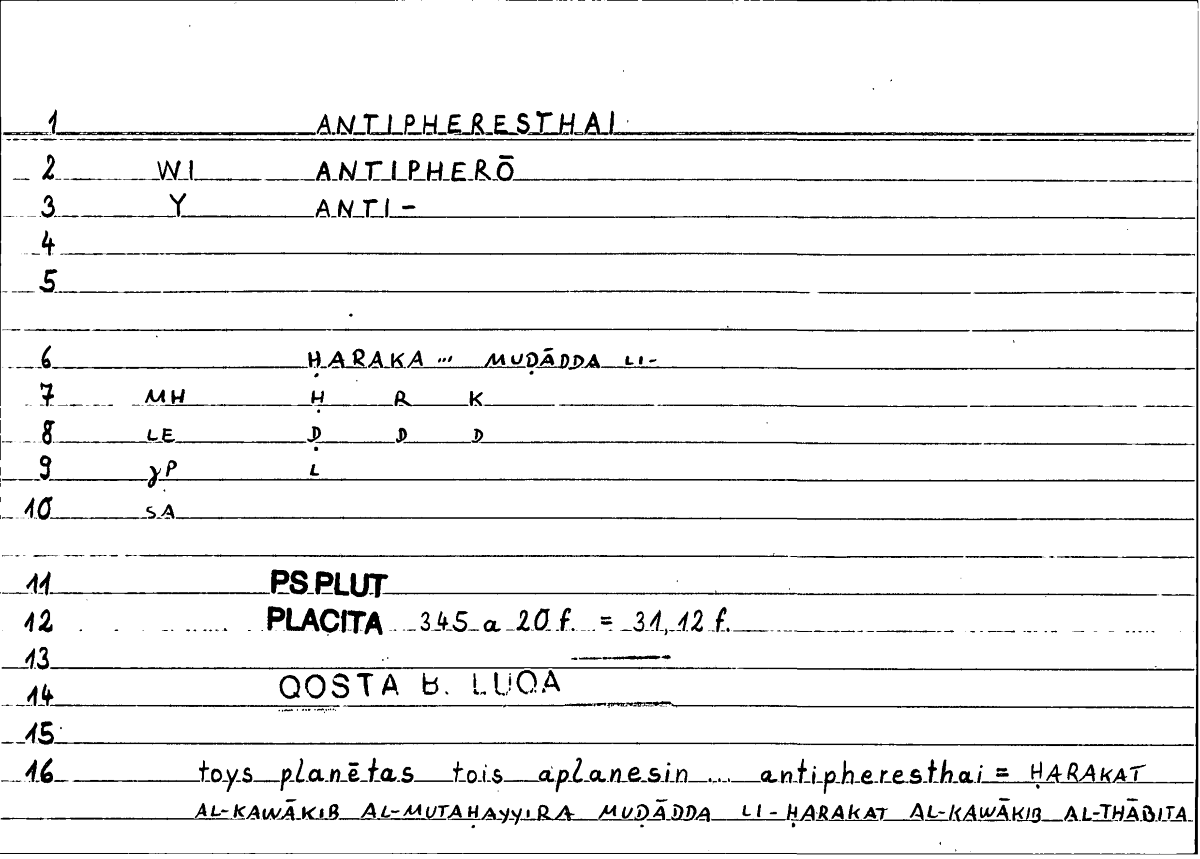 1 ANTIPHERESTHAI
2 WI ANTIPHERŌ
3 Y ANTI-
4
5
6 ḤARAKA ... MUḌĀDDA LI-
7 MH Ḥ R K
8 LE Ḍ D D
9 γP L
10 SA
11 PS.PLUT
12 PLACITA 345 a 20 f. = 31,12 f.
13
14 QOSTA B. LUQA
15
16 toys planētas tois aplanesin ... antipheresthai = ḤARAKAT
AL-KAWĀKIB AL-MUTAḤAYYIRA MUḌĀDDA LI-ḤARAKAT AL-KAWĀKIB AL-THĀBITA